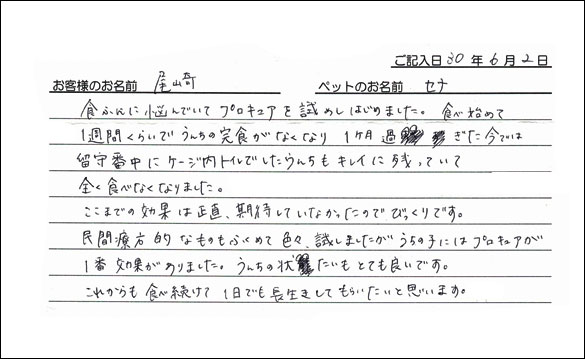 ご記入日 30 年 6 月 2 日
お客様のお名前 尾崎 ペットのお名前 セナ
食ふんに悩んでいてプロキュアを試めしはじめました。食べ始めて
1週間くらいでうんちの完食がなくなり 1ヶ月過ぎた今では
留守番中にケージ内トイレでしたうんちもキレイに残っていて
全く食べなくなりました。
ここまでの効果は正直、期待していなかったのでびっくりです。
民間療方的なものもふくめて色々、試しましたがうちの子にはプロキュアが
1番効果がありました。うんちの状たいもとても良いです。
これからも食べ続けて1日でも長生きしてもらいたいと思います。